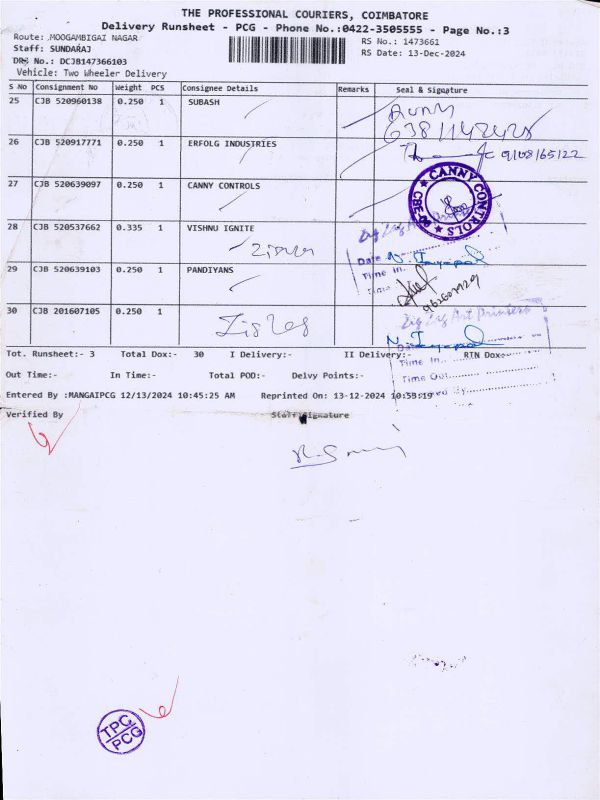 THE PROFESSIONAL COURIERS, COIMBATORE
Delivery Runsheet - PCG - Phone No.:0422-3505555 - Page No.:3
Route: .MOOGAMBIGAI NAGAR
RS No.: 1473661
Staff: SUNDARAJ
RS Date: 13-Dec-2024
DRS No.: DCJB147366103
Vehicle: Two Wheeler Delivery
S No Consignment No Weight PCS Consignee Details Remarks Seal & Signature
25 CJB 520960138 0.250 1 SUBASH
26 CJB 520917771 0.250 1 ERFOLG INDUSTRIES
9108165122
27 CJB 520639097 0.250 1 CANNY CONTROLS
CANNY CONTROLS
28 CJB 520537662 0.335 1 VISHNU IGNITE
Zig Zag Art Printers
Date
Time In.
Time
29 CJB 520639103 0.250 1 PANDIYANS
30 CJB 201607105 0.250 1
Zig Zag Art Printers
Tot. Runsheet:- 3 Total Dox:- 30 I Delivery:- II Delivery:- RTN Dox:-
Time In..
Out Time:- In Time:- Total POD:- Delvy Points:-
Time Out
Entered By :MANGAIPCG 12/13/2024 10:45:25 AM Reprinted On: 13-12-2024 10:59:19
Verified By Staff Signature
TPC
PCG